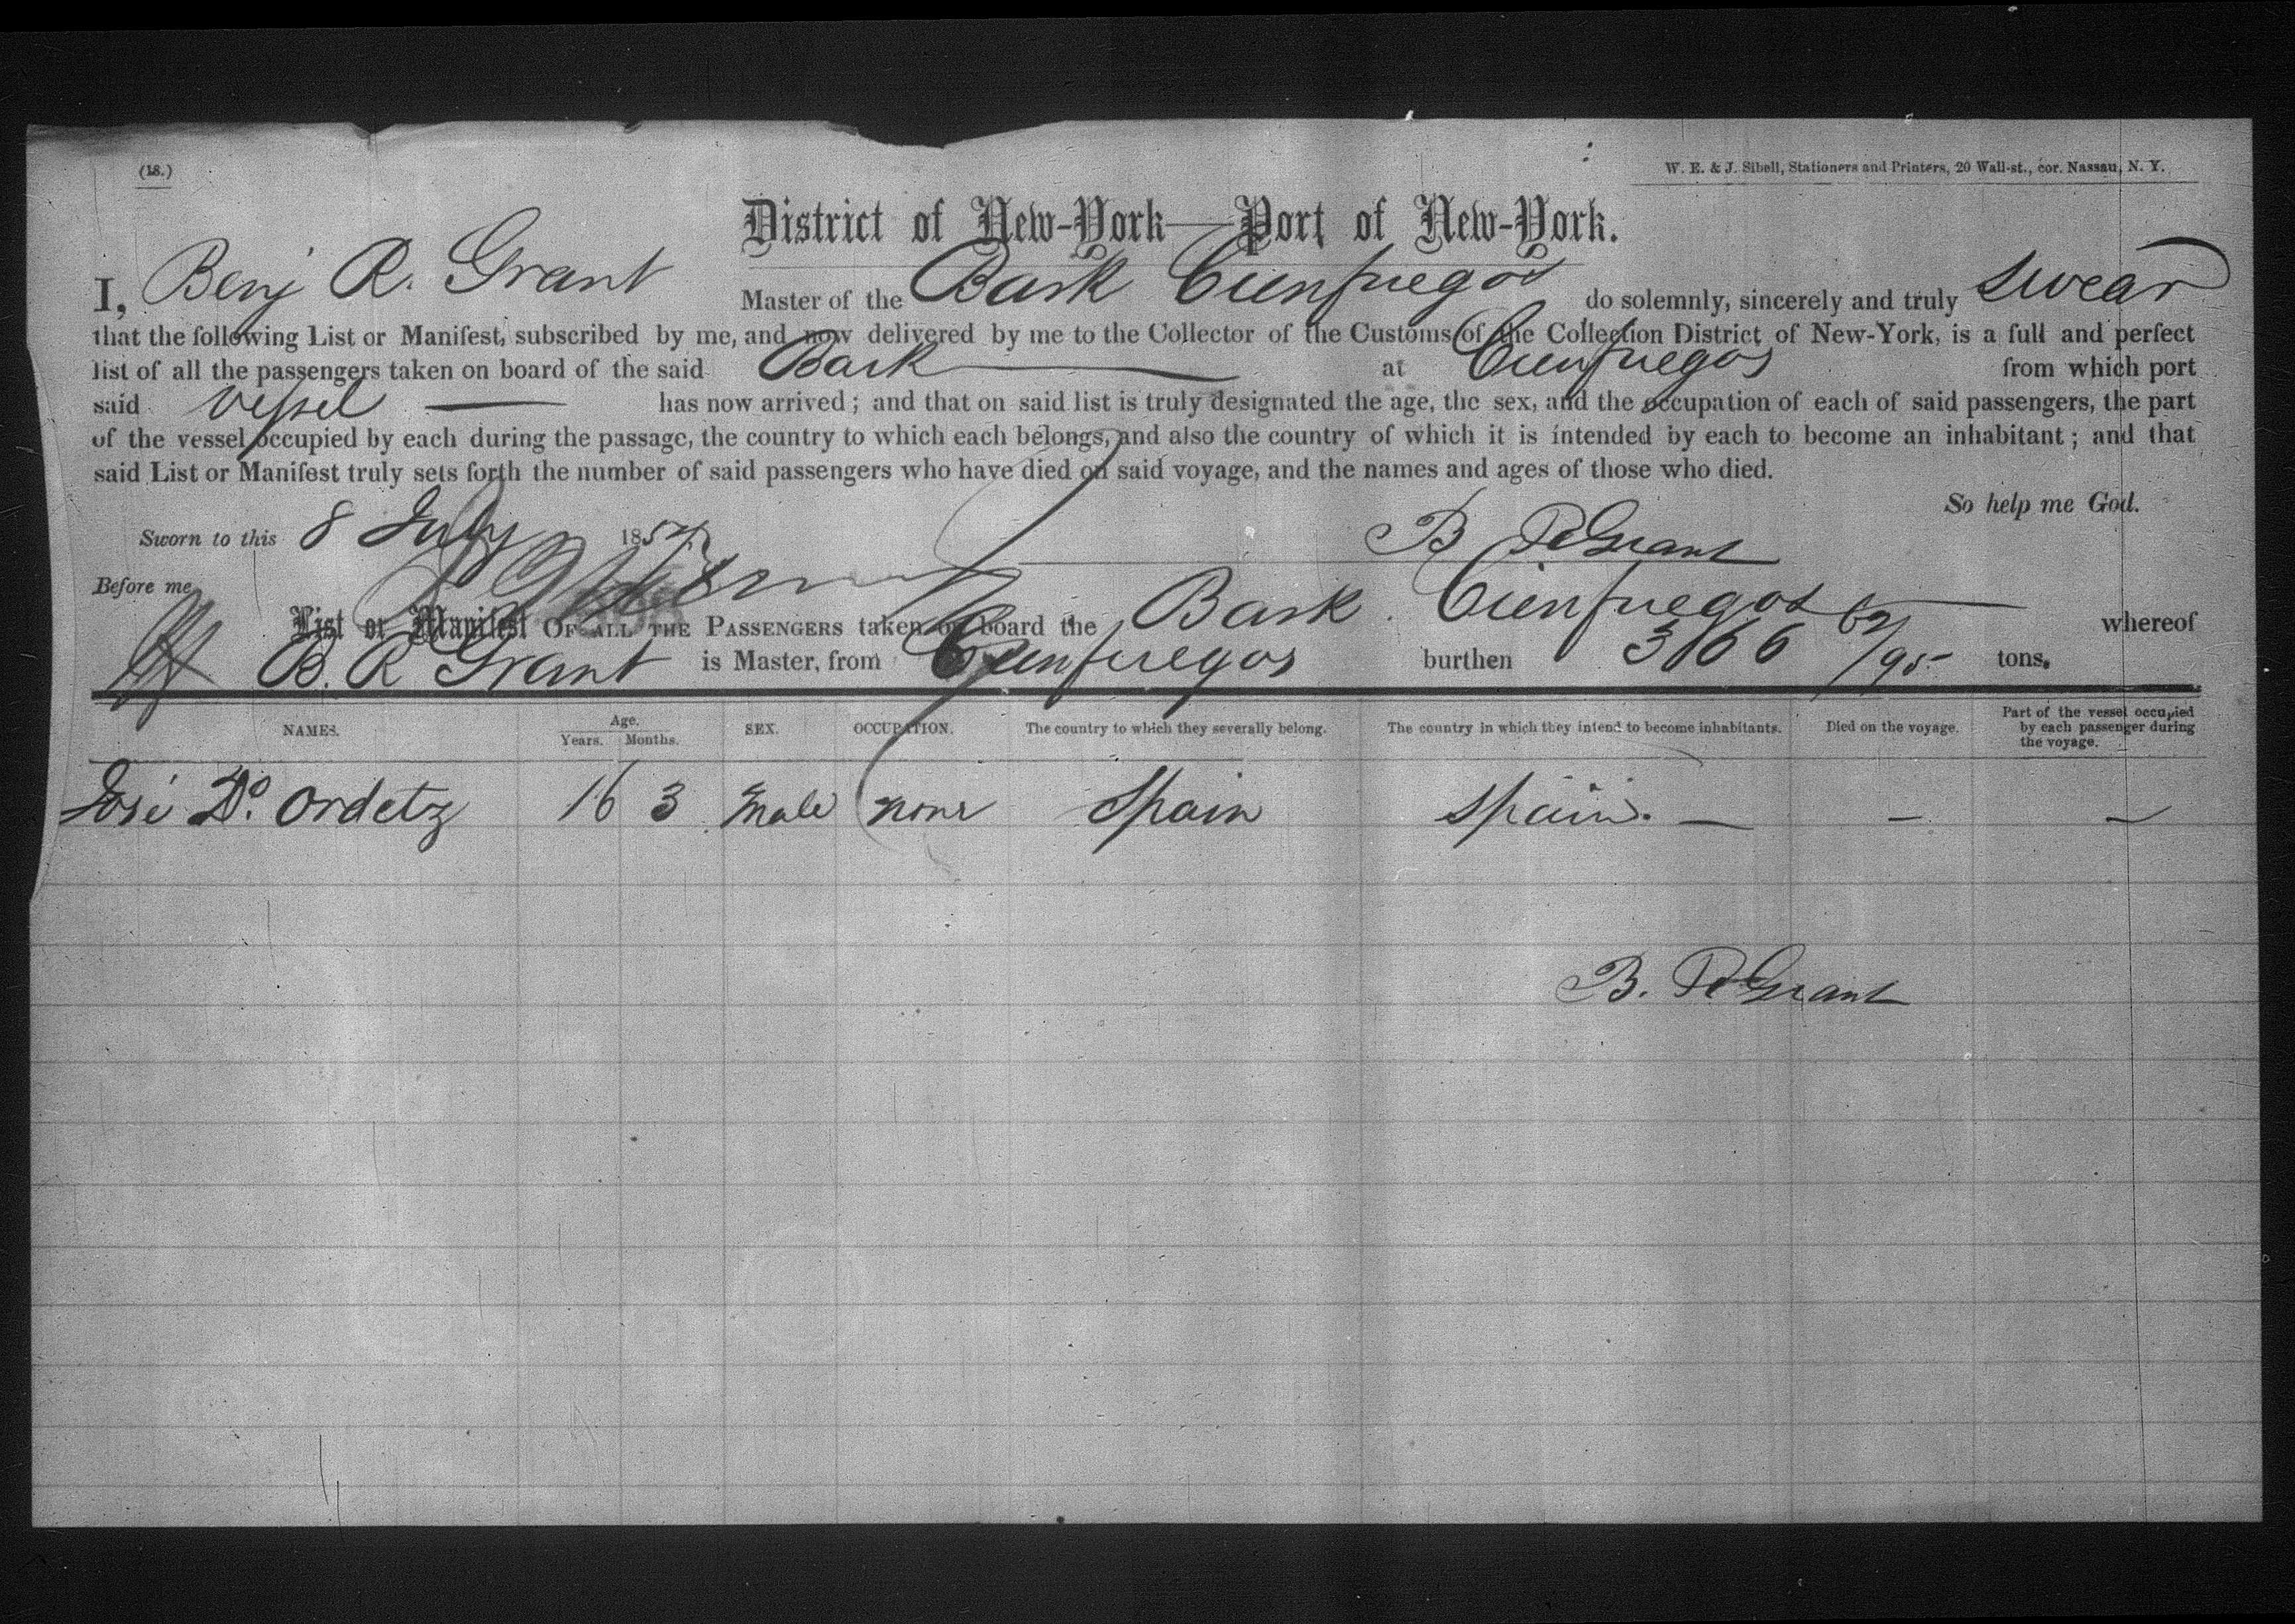 (18.)
W. E. & J. Sibell, Stationers and Printers, 20 Wall-st., cor. Nassau, N. Y.
District of New-York—Port of New-York.
I, Benj R. Grant Master of the Bark Cienfuegos do solemnly, sincerely and truly swear
that the following List or Manifest, subscribed by me, and now delivered by me to the Collector of the Customs of the Collection District of New-York, is a full and perfect
list of all the passengers taken on board of the said Bark at Cienfuegos from which port
said Vessel has now arrived; and that on said list is truly designated the age, the sex, and the occupation of each of said passengers, the part
of the vessel occupied by each during the passage, the country to which each belongs, and also the country of which it is intended by each to become an inhabitant; and that
said List or Manifest truly sets forth the number of said passengers who have died on said voyage, and the names and ages of those who died.
So help me God.
Sworn to this 8 July 185 B R Grant
Before me
List or Manifest OF ALL THE PASSENGERS taken on board the Bark Cienfuegos whereof
B. R Grant is Master, from Cienfuegos burthen 366 62/95 tons.
NAMES. Age. Years. Months. SEX. OCCUPATION. The country to which they severally belong. The country in which they intend to become inhabitants. Died on the voyage. Part of the vessel occupied by each passenger during the voyage.
José Do. Ordetz 16 3 Male none Spain Spain. — – –
B. R Grant